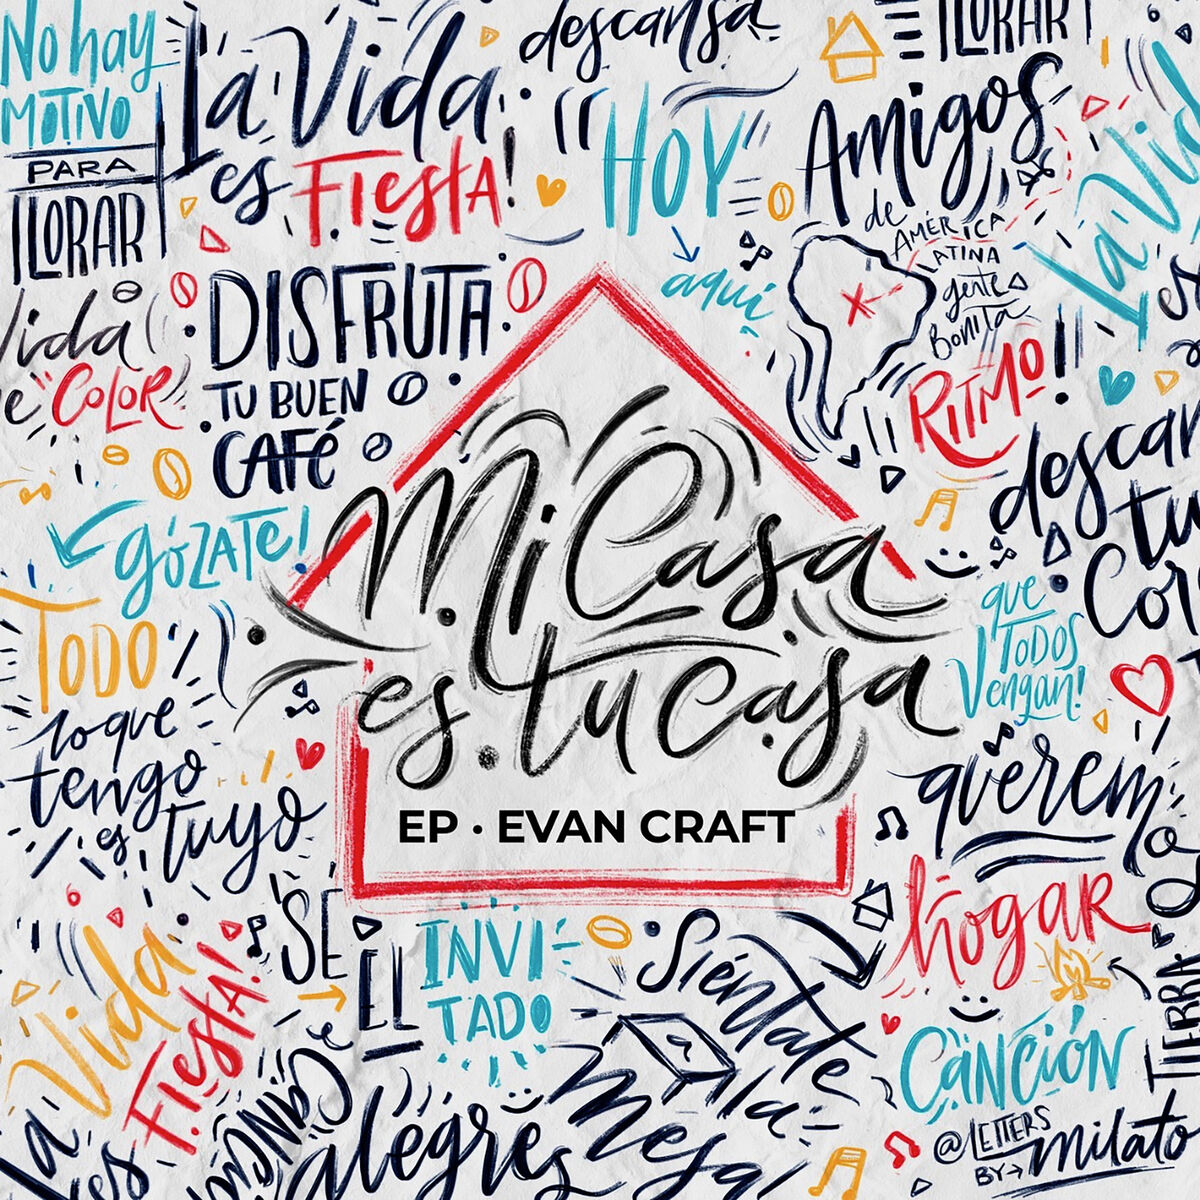 No hay
MOTIVO
PARA
LLORAR
La Vida
es FIESTA!
descansa
HOY
aquí
LLORAR
Amigos
de
AMÉRICA
LATINA
gente
Bonita
La Vid
es
Vida
COLOR
DISFRUTA
TU BUEN
CAFÉ
RITMO!!
descan
tu
Cor
gózate!
Mi Casa
es tu casa
EP · EVAN CRAFT
TODO
lo que
tengo
es tuyo
que
TODOS
Vengan!
querem
hogar
La Vida
es FIESTA!
SÉ
EL
INVI
TADO
Siéntate
a la
mesa
TIERRA
CANCIÓN
CANCIÓN
alegres
@LETTERS
BY→ milato